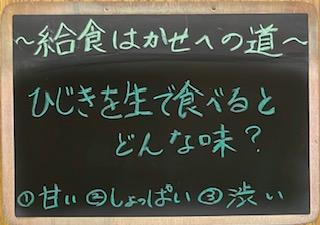 ～給食はかせへの道～
ひじきを生で食べると
どんな味？
①甘い ②しょっぱい ③渋い